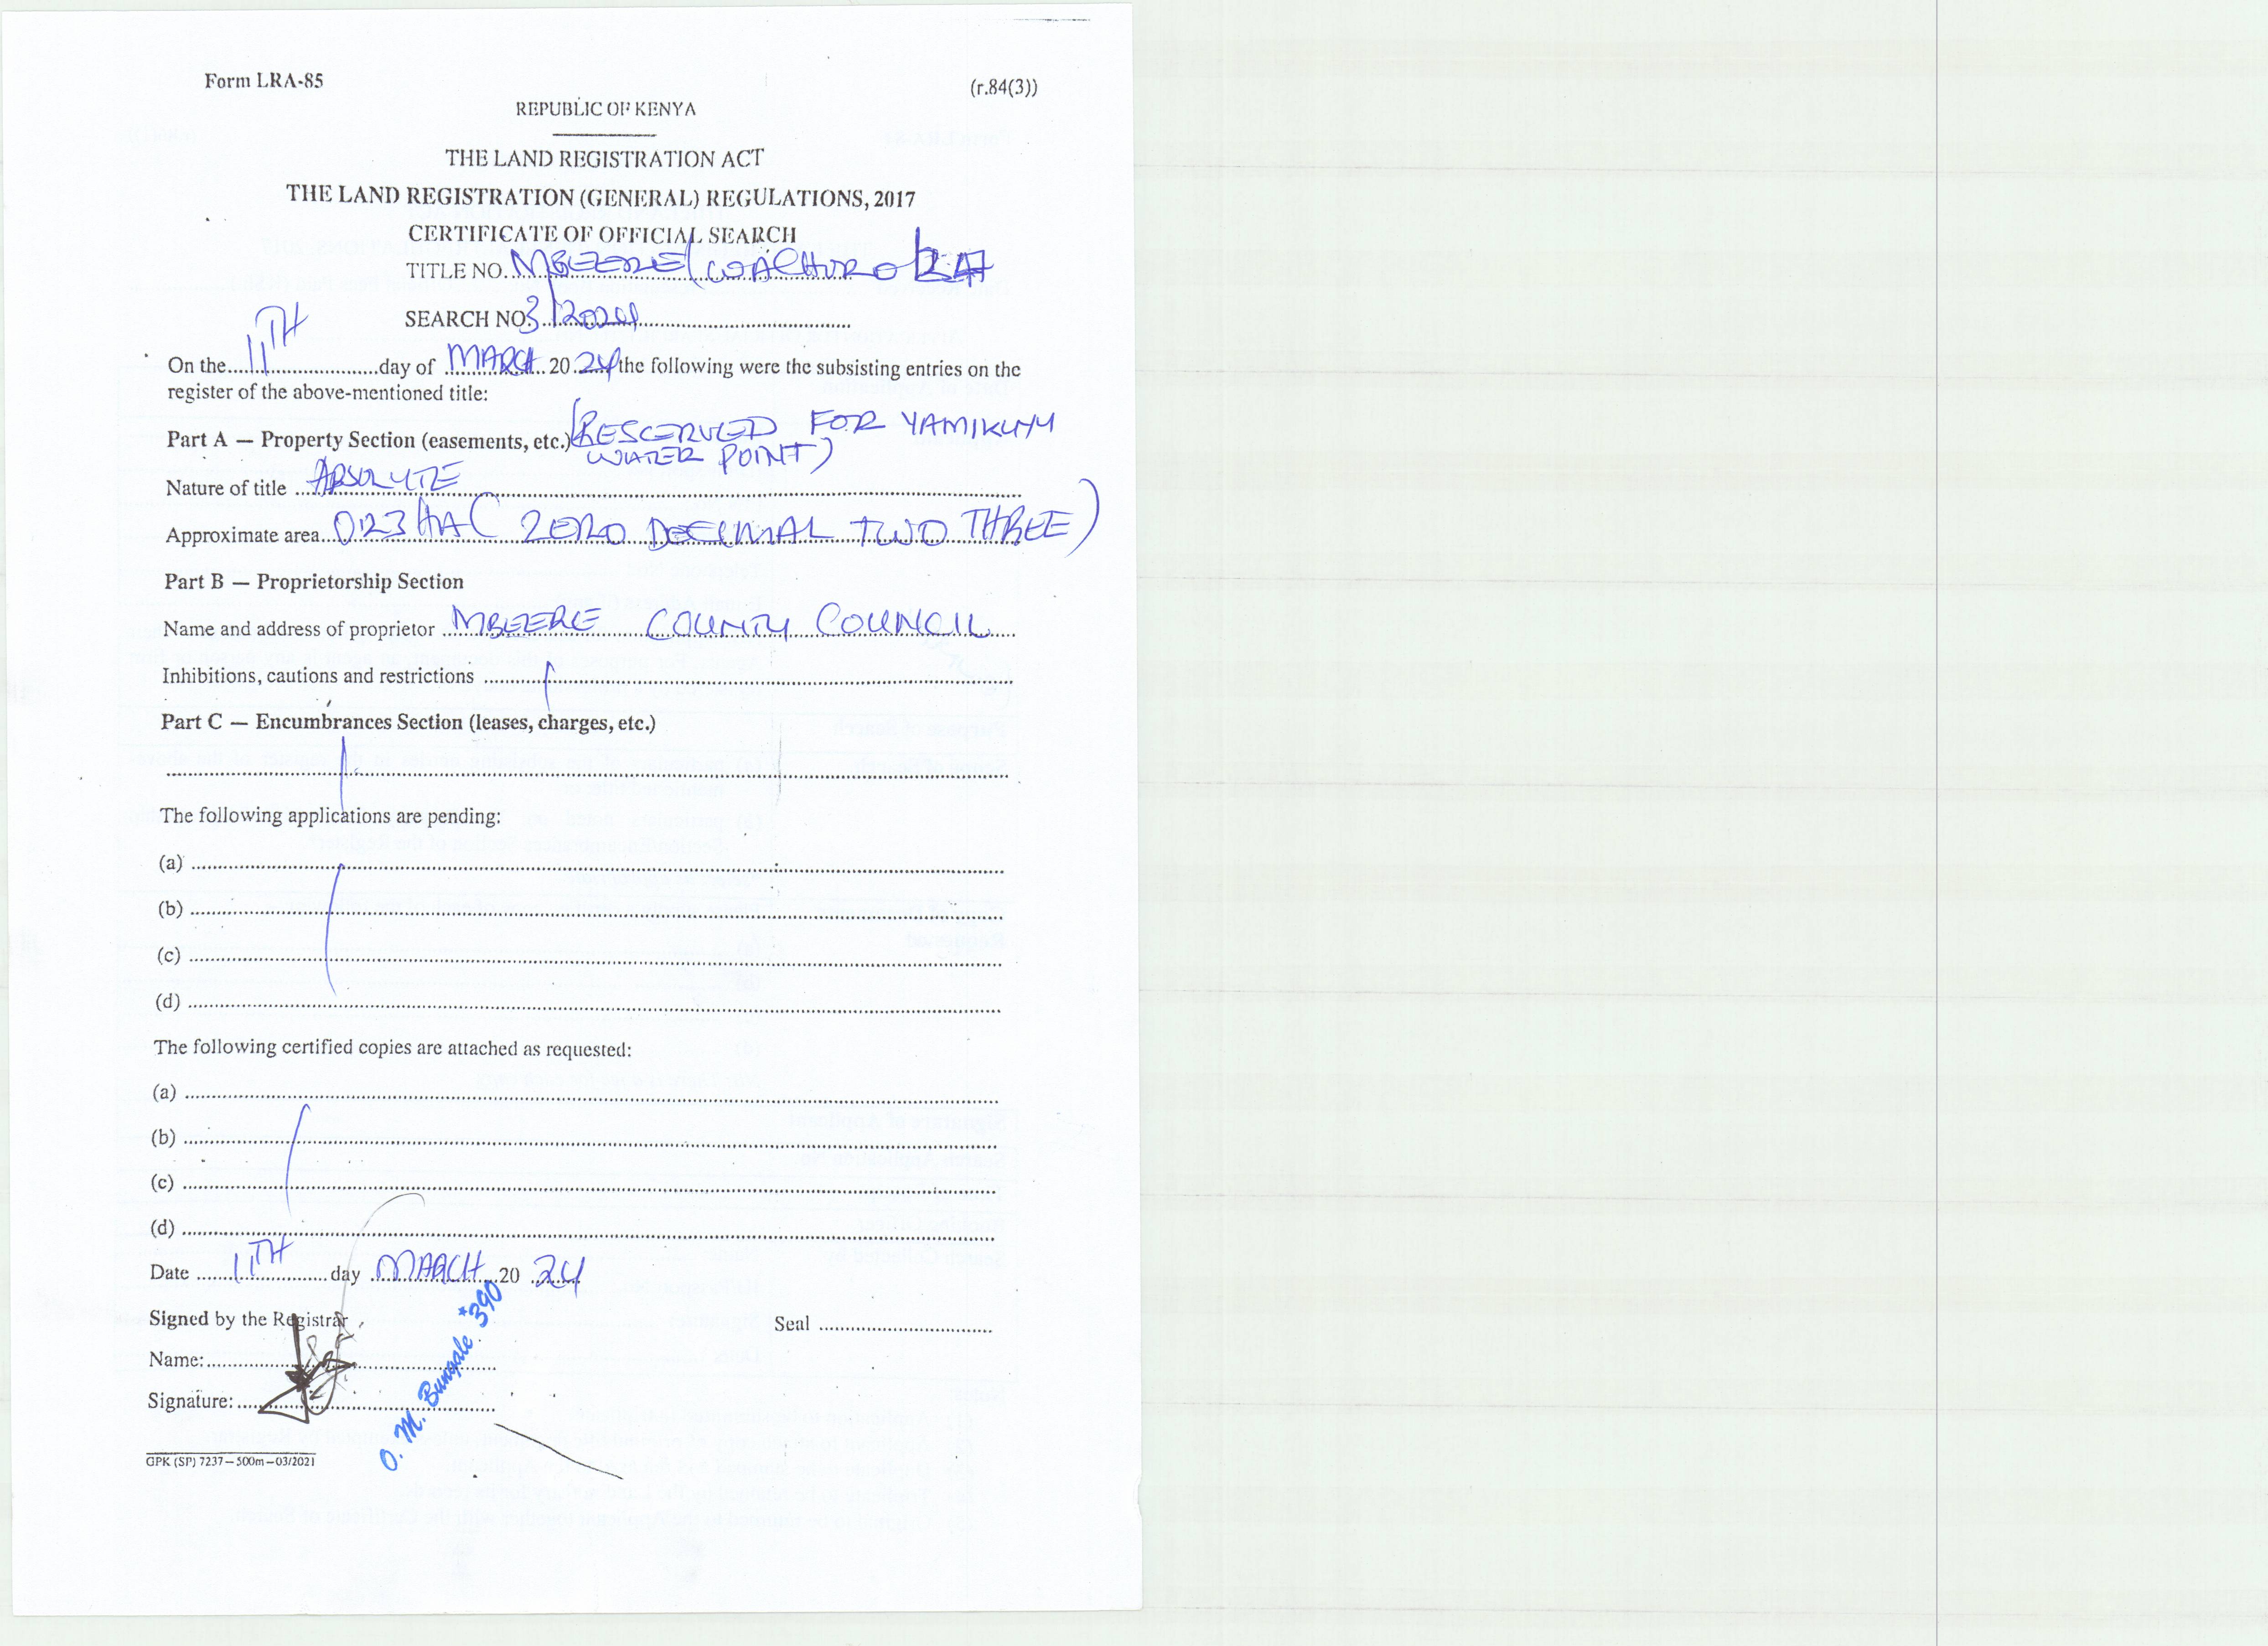 Form LRA-85
(r.84(3))
REPUBLIC OF KENYA
THE LAND REGISTRATION ACT
THE LAND REGISTRATION (GENERAL) REGULATIONS, 2017
CERTIFICATE OF OFFICIAL SEARCH
TITLE NO. MBEERE/WACHORO
SEARCH NO. 3/2024
On the 11TH day of MARCH 20 24 the following were the subsisting entries on the
register of the above-mentioned title:
Part A — Property Section (easements, etc.) (RESERVED FOR YAMIKUYU
WATER POINT)
Nature of title ABSOLUTE
Approximate area 0.23 HA ( ZERO DECIMAL TWO THREE)
Part B — Proprietorship Section
Name and address of proprietor MBEERE COUNTY COUNCIL
Inhibitions, cautions and restrictions
Part C — Encumbrances Section (leases, charges, etc.)
The following applications are pending:
(a)
(b)
(c)
(d)
The following certified copies are attached as requested:
(a)
(b)
(c)
(d)
Date 11TH day MARCH 20 24
Signed by the Registrar
Seal
Name:
O. M. Bungale *390
Signature:
GPK (SP) 7237—500m—03/2021